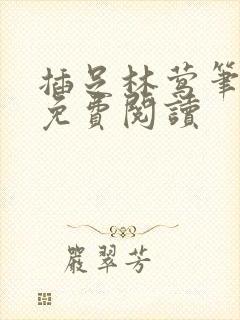 插足林莺筆
免費閱讀
嚴翠芳